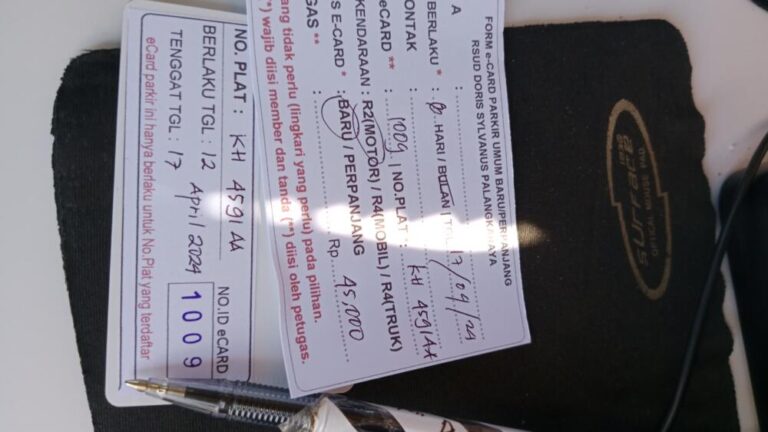 FORM e-CARD PARKIR UMUM BARU/PERPANJANG
RSUD DORIS SYLVANUS PALANGKARAYA
A :
BERLAKU * : HARI / BULAN / 17/04/24
ONTAK :
eCARD ** : 1009 NO.PLAT : KH 4591 AA
KENDARAAN : R2(MOTOR) / R4(MOBIL) / R4(TRUK)
S E-CARD * : BARU / PERPANJANG
GAS ** : Rp. 45,000
ang tidak perlu (lingkari yang perlu) pada pilihan.
*) wajib diisi member dan tanda (**) diisi oleh petugas.
NO. PLAT : KH 4591 AA
BERLAKU TGL : 12 April 2024
TENGGAT TGL : 17
NO.ID eCARD
1009
eCard parkir ini hanya berlaku untuk No.Plat yang terdaftar
SURFACE